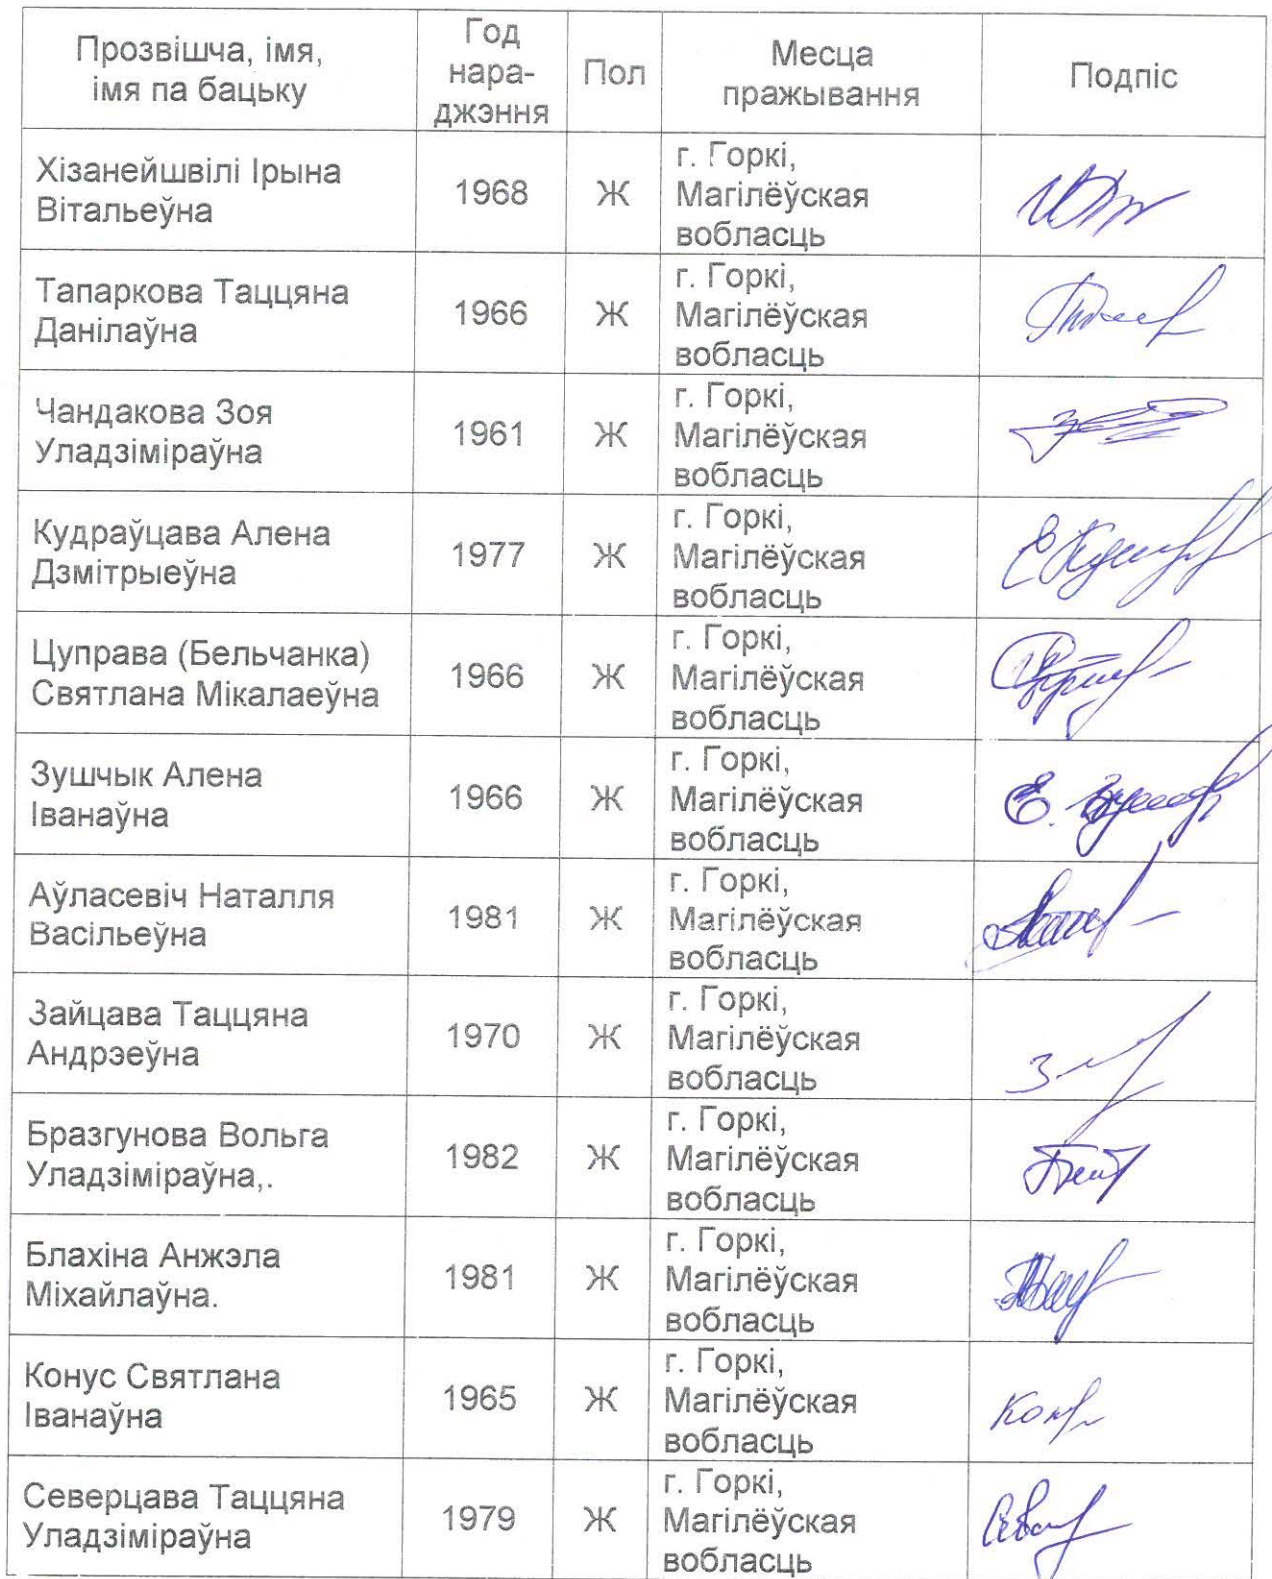 Прозвішча, імя,
імя па бацьку
Год
нара-
джэння
Пол
Месца
пражывання
Подпіс
Хізанейшвілі Ірына
Вітальеўна
1968
Ж
г. Горкі,
Магілёўская
вобласць
Тапаркова Таццяна
Данілаўна
1966
Ж
г. Горкі,
Магілёўская
вобласць
Чандакова Зоя
Уладзіміраўна
1961
Ж
г. Горкі,
Магілёўская
вобласць
Кудраўцава Алена
Дзмітрыеўна
1977
Ж
г. Горкі,
Магілёўская
вобласць
Цуправа (Бельчанка)
Святлана Мікалаеўна
1966
Ж
г. Горкі,
Магілёўская
вобласць
Зушчык Алена
Іванаўна
1966
Ж
г. Горкі,
Магілёўская
вобласць
Аўласевіч Наталля
Васільеўна
1981
Ж
г. Горкі,
Магілёўская
вобласць
Зайцава Таццяна
Андрэеўна
1970
Ж
г. Горкі,
Магілёўская
вобласць
Бразгунова Вольга
Уладзіміраўна,.
1982
Ж
г. Горкі,
Магілёўская
вобласць
Блахіна Анжэла
Міхайлаўна.
1981
Ж
г. Горкі,
Магілёўская
вобласць
Конус Святлана
Іванаўна
1965
Ж
г. Горкі,
Магілёўская
вобласць
Северцава Таццяна
Уладзіміраўна
1979
Ж
г. Горкі,
Магілёўская
вобласць